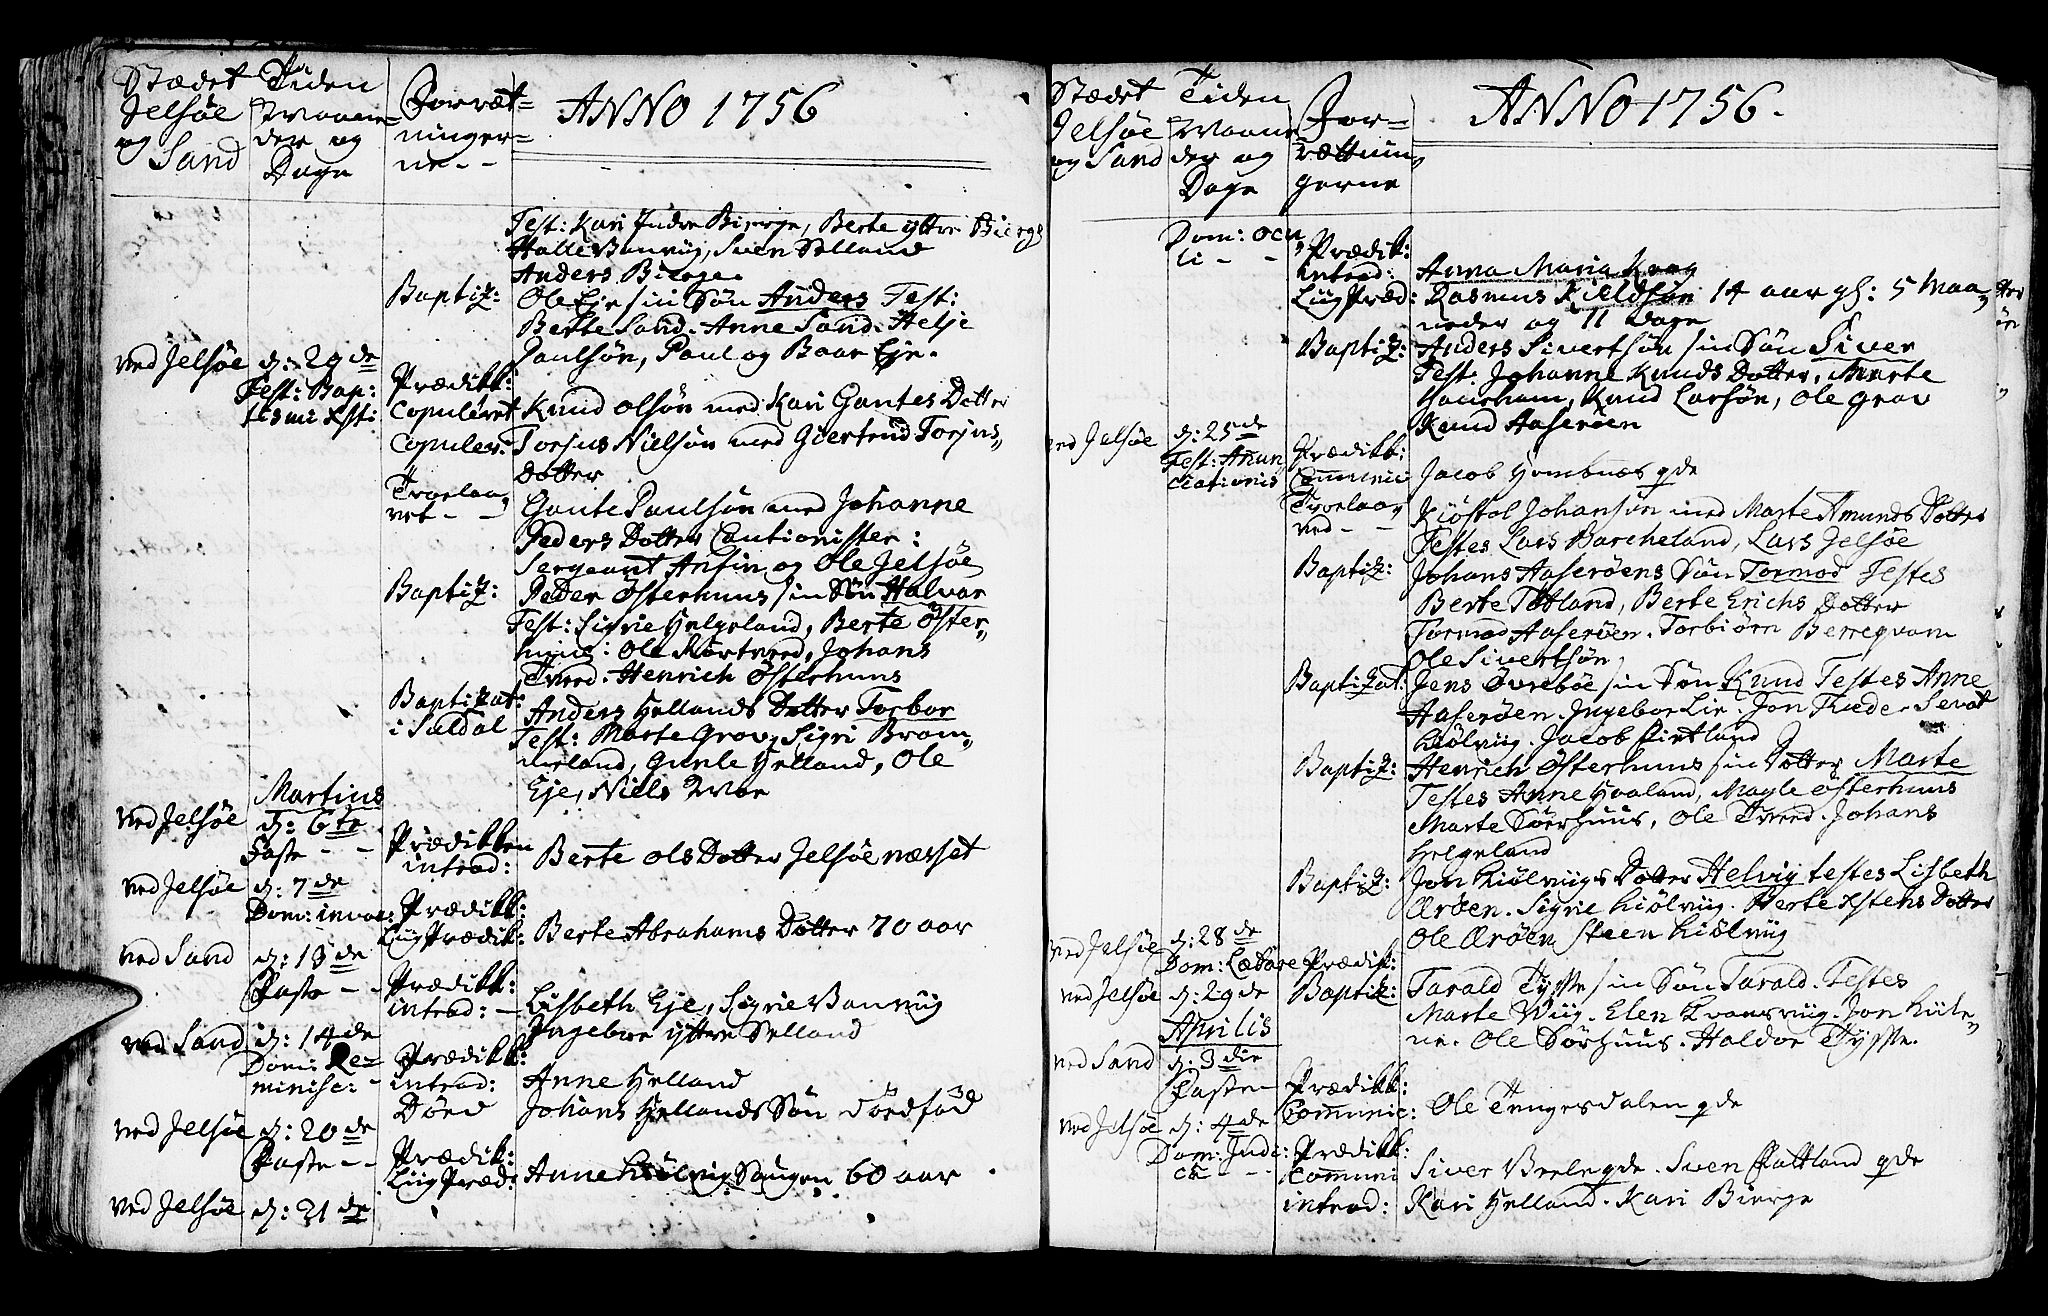 Stædet
Jelsøe
og Sand
Tiden
Maane-
der og
Dage
Forræt-
ninger-
ne - -
ANNO 1756
Test: Kari Indre Bierge, Berte ytter Bierge
Halle Vanvig, Sven Selland
Anders Bierge
Baptiz: Ole Eje sin Søn Anders Test:
Berte Sand. Anne Sand. Helje
Paulsøn, Paul og Baar Eje.
ved Jelsøe d: 29de Prædikk:
Fest: Bap:
tismi Xsti:
Copuleret Knud Olsøn med Kari Gautes Dotter
Copuler: Torjus Nielsøn med Giertrud Torjus
Dotter
Troelaa-
vet - - Gaute Paulsøn med Johanne
Peders Dotter Cautionister:
Sergeant Ansin og Ole Jelsøe
Baptiz: Peder Østerhuus sin Søn Halvor
Test: Sigrie Helgeland, Berte Øster-
huus: Ole Kørtveed, Johans
Tveed. Henrich Østerhuus
Baptizat: Anders Hellands Dotter Torbor
i Suldal Test: Marte Grov, Sigri Brom-
meland, Gunle Helland, Ole
Eje, Niels Moe
Martius
ved Jelsøe d: 6te
Faste - - Prædikken
introd: Berte Ols Dotter Jelsøenæsset
ved Jelsøe d: 7de
Dom: invoc: Prædikk:
Liig Prædik: Berte Abrahams Dotter 70 aar
ved Sand d: 13de
Faste - - Prædikk:
introd: - Lisbeth Eje, Sigrie Vanviig
Ingebor yttre Selland
ved Sand d: 14de
Dom: Re-
minisc: - Prædikk:
introd: Anne Helland
Døed Johans Hellands Søn Dødfød
ved Jelsøe d: 20de
Faste - - Prædik:
Liig Præd: Anne Kiølvig Saugen 60 aar
ved Jelsøe d: 21de
Stædet
Jelsøe
og Sand
Tiden
Maane
der og
Dage
For-
rættnin-
gerne
ANNO 1756.
Dom: Ocu-
li - - Prædik:
introd: Anna Maria Krag
Liig Præd: Rasmus Kieldsøn 14 aar gl: 5 Maa-
neder og 11 Dage
Baptiz: Anders Sivertsøn sin Søn Siver
Test. Johanne Knuds Dotter, Marte
Knud Larsøn, Ole Grov
Knud Aaserøen
ved Jelsøe d: 25de
Fest: Anun
ciationis Prædikk:
Communic Jacob Hombnæs gde
Troelaa-
ved - - Kiøstol Johansøn med Marte Amunds Dotter
Testes Lars Barcheland, Lars Jelsøe
Baptiz: Johans Aaserøens Søn Tormod Testes
Berte Totland, Berte Erichs Dotter
Tormod Aaserøen. Torbiørn Berreqvam
Ole Sivertsøn
Baptizat: Jens Øvrebøe sin Søn Knud Testes Anne
Aaserøen. Ingebor Lie. Jon Tuede. Sevat
Kiølviig. Jacob Hietland
Baptiz: Henrich Østerhuus sin Dotter Marte
Testes Anne Haaland, Magle Østerhuus
Marte Sørhuus, Ole Tveed. Johans
Helgeland
Baptiz: Jon Kiølviigs Dotter Helvig testes Lisbeth
Ærøen. Sigrie Kiølviig. Berte Xstens Dotter
Ole Ærøen Steen Kiølviig
ved Jelsøe d: 28de
Dom: Lætare Prædik:
ved Jelsøe d: 29de Baptiz: Tarald Tysse sin Søn Tarald. Testes
Marte Viig. Elen Kvansviig. Jon Kule-
ne. Ole Sørhuus. Haldor Tysse.
Aprilis
ved Sand d: 3die
Faste - Prædikk:
Communic: Ole Tengesdalen gde
ved Jelsøe d: 4de
Dom: Judi:
ca - - Prædik:
Communi Siver Vrele gde. Sven Flattland gde
introd: Kari Helland. Kari Bierge